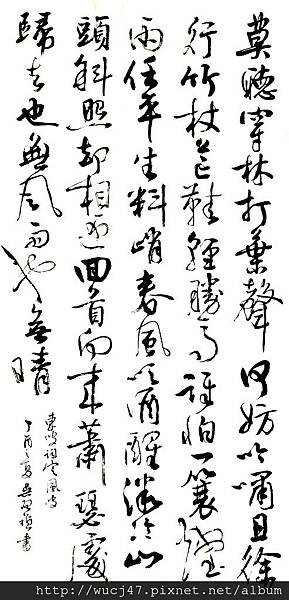 莫聽穿林打葉聲何妨吟嘯且徐
行竹杖芒鞋輕勝馬誰怕一蓑煙
雨任平生料峭春風吹酒醒微冷山
頭斜照却相迎回首向来蕭瑟處
歸去也無風雨也無晴
東坡詞定風波
丁酉之夏吳書
http://wucj47.pixnet.net/album